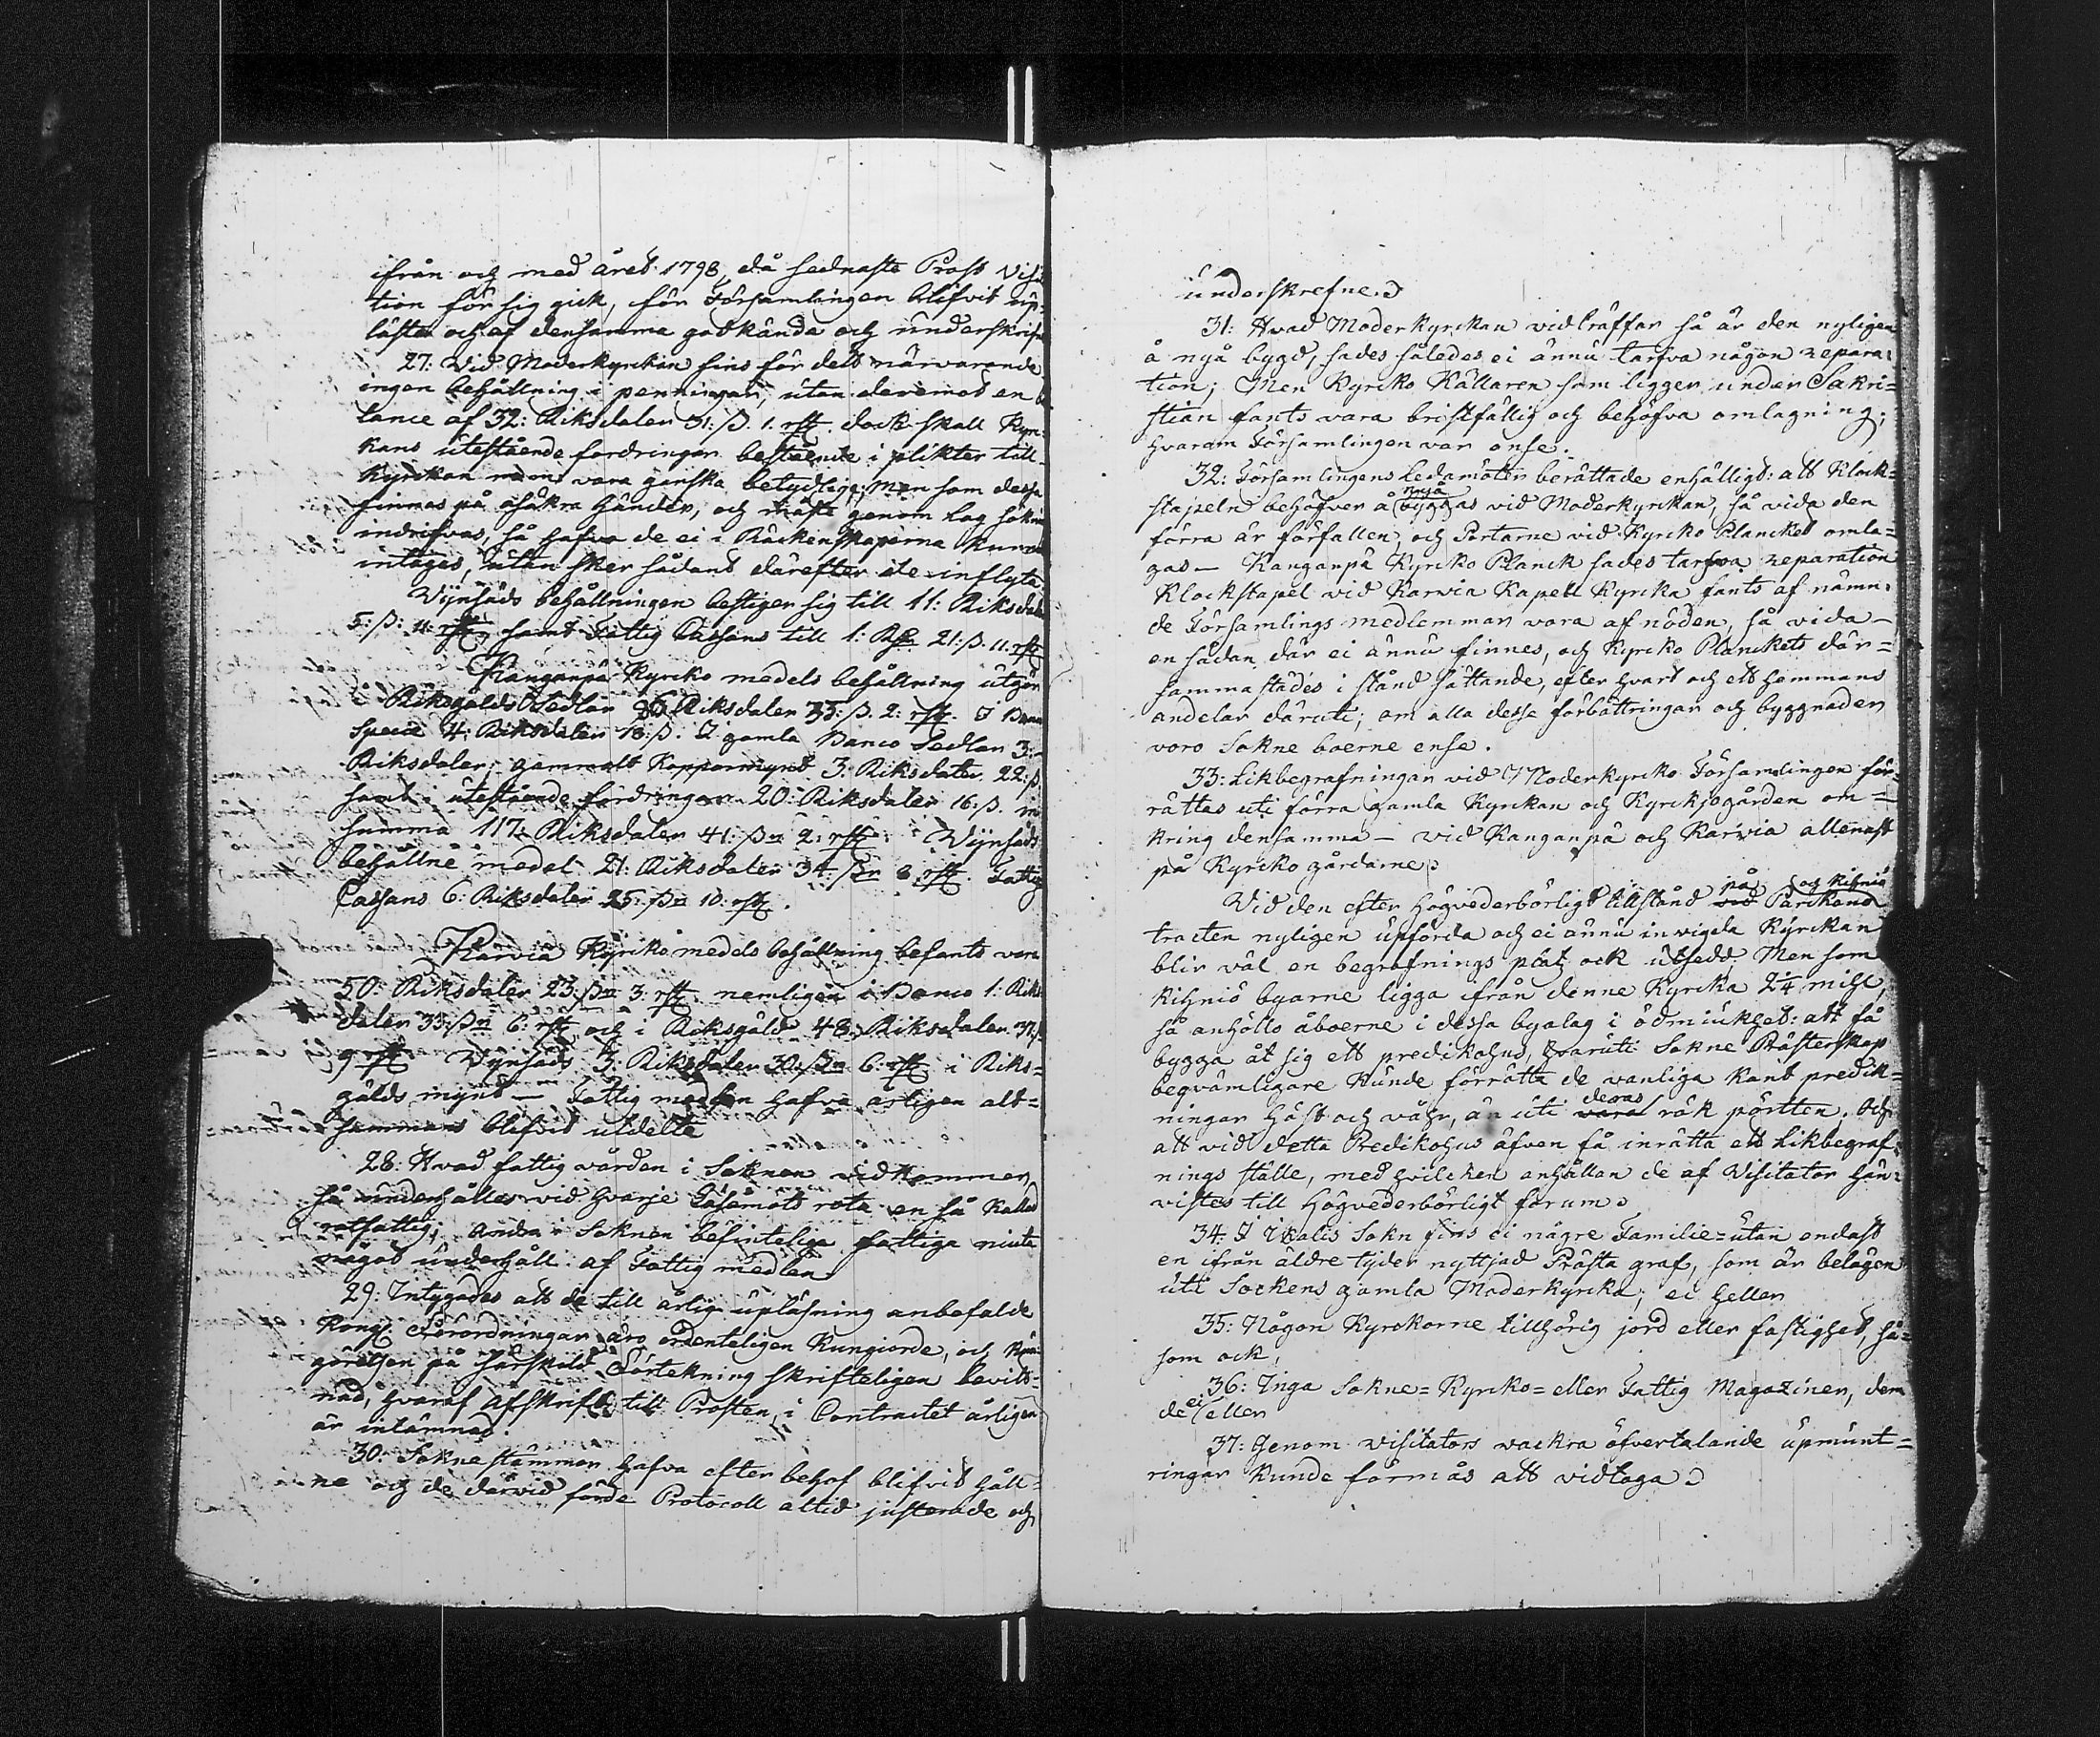 ifrån och med året 1798, då sednaste Prost Visi
tion för sig gick, för Församlingen blifvit up-
läste och af densamma godkände och underskrifne
27: Vid Moderkyrkan fins för det närvarande
ingen behållning i penningar, utan deremot en
lance af 32: Riksdaler 31: ß. 1. rst. dock skall Kyr-
kans utestående fordringar bestående i plikter till
Kyrckan wara ganska betydlige; Men som dessa
finnas på osäkra händer, och måste genom lag sökn
indrifvas, så hafva de ei i Räckenskaperna kunna
intagas, utan sker sådant därefter de inflyta
Vijnsåds behållningen bestiger sig till 11: Riksdaler
5: ß: 11: rst, samt Fattig Cassans till 1: Rd 21: ß. 11. rst
Kanganpä Kyrcko medels behållning utgör
i Riksgälds Sedlar 86 Riksdaler 35: ß. 2: rst. I Banco
Specie 4: Riksdaler 18: ß. I gamla Banco Sedlar 3:
Riksdaler; gammalt Kopparmynt 3: Riksdaler 22: ß
samt i utestående fordringar 20: Riksdaler 16: ß.
summa 117: Riksdaler 41: ß 2: rst. Wijnsåds
behållne medel 21: Riksdaler 34 ßr 8 rst. Fattig
Cassans 6: Riksdaler 25: ß 10: rst.
Karvia Kyrcko medels behållning befants vara
50: Riksdaler 23: ß 3: rst, nemligen i Banco 1: Riks
daler 35: ß 6: rst, och i Riksgäld 48: Riksdaler 37: ß
9 rst Wijnsåds 3: Riksdaler 30: ß 6: rst i Riks=
gälds mynt — Fattig medlen hafva årligen alt=
sammans blifvit utdelte
28: Hvad fattig vården i Soknen vidkommer,
så underhålles vid hvarje Läsemöts rota en så kallad
rotfattig; andra i Soknen befinteliga fattiga niuta
något underhåll af Fattig medlen
29: Intygades att de till årlig upläsning anbefalde
Kongl. Förordningar äro ordenteligen kungiorde, och kun
görelsen på särskild Förtekning skrifteligen bevitt-
nad, hvaraf afskrift till Prosten i Contractet årligen
är inlämnad.
30: Sokne stämmor hafva efter behof blifvit håll=
ne och de därvid förde Protocoll altid justerade och
underskrefne.
31: Hvad Moder Kyrckan vidträffar så är den nyligen
å nyå bygd, sades således ei ännu tarfva någon repara-
tion; Men Kyrcko Källaren som ligger under Sakri=
stian fants vara bristfällig och behöfva omlagning;
hvarom Församlingen var ense.
32: Församlingens ledamöter berättade enhälligt: att Klock=
stapeln behöfver å nyå byggas vid Moderkyrckan, så vida den
förra är förfallen, och Portarne vid Kyrcko Plancket omla=
gas — Kanganpä Kyrcko Planck sades tarfva reparation
Klockstapel vid Karvia Kapell Kyrcka fants af nämn=
de Församlings medlemmar vara af nöden, så vida —
en sådan där ei ännu finnes, och Kyrcko Planckets där=
sammastädes i stånd sättande, efter hvart och ett hemmans
andelar däruti; om alla dessa förbättringar och byggnader
voro Sokne boerne ense.
33: Likbegrafningar vid Moderkyrcko Församlingen för-
rättas uti förra gamla Kyrckan och Kyrckjogården om=
kring densamma — vid Kanganpä och Karvia allenast
på Kyrcko gårdarne
Vid den efter Högvederbörligt tillstånd på vid Parckano och Kihniö
tracten nyligen upförda och ei ännu invigda Kyrckan
blir väl en begrafnings plats ock utsedd, Men som
Kihniö byarne ligga ifrån denne Kyrcka 2¼ mihl,
så anhöllo åboerne i dessa byalag i ödmiukhet: att få
bygga åt sig ett predikohus, hvaruti Sokne Prästerskap
begvämligare kunde förrätta de vanliga Kant predik=
ningar höst och våhr, än uti deras våra rök pörtten. Och
att vid detta Predikohus äfven få inrätta ett Likbegraf-
nings ställe, med hvilcken anhållan de af Visitator hän-
vistes till Högvederbörligt forum
34: I Ikalis Sokn fins ei någre Familie= utan endast
en ifrån äldre tyder nyttjad Prästa graf, som är belägen
uti Sockens gamla Moderkyrcka; ei heller
35: Någon Kyrckorne tillhörig jord eller fastighet, så=
som ock,
36: Inga Sokne= Kyrcko= eller Fattig Magaziner, dem
de ei eller
37: Genom Visitators vackra öfvertalande upmunt=
ringar kunde förmås att vidtaga